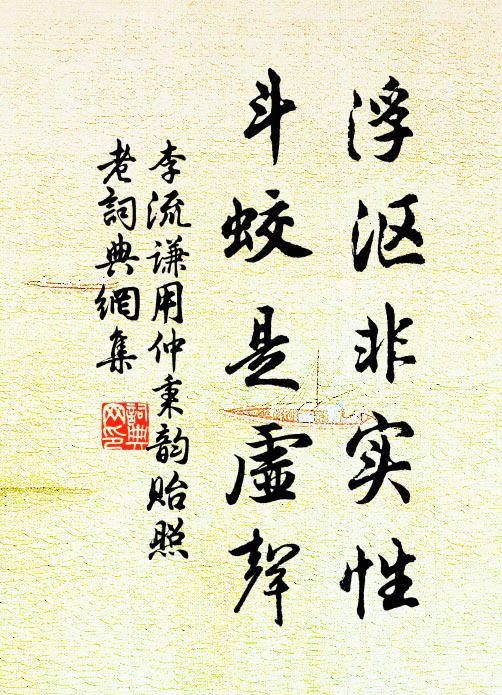 浮沤非实性
斗蛟是虚聲
李流谦用仲秉韵贻照
老詞典網集
詞典
网印